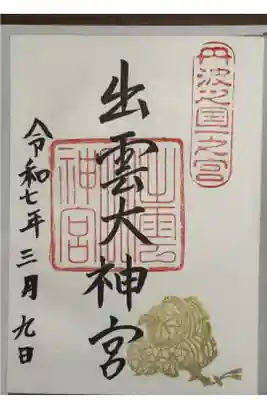 丹波之国一之宮
出雲大神宮
出雲大神宮
令和七年三月九日